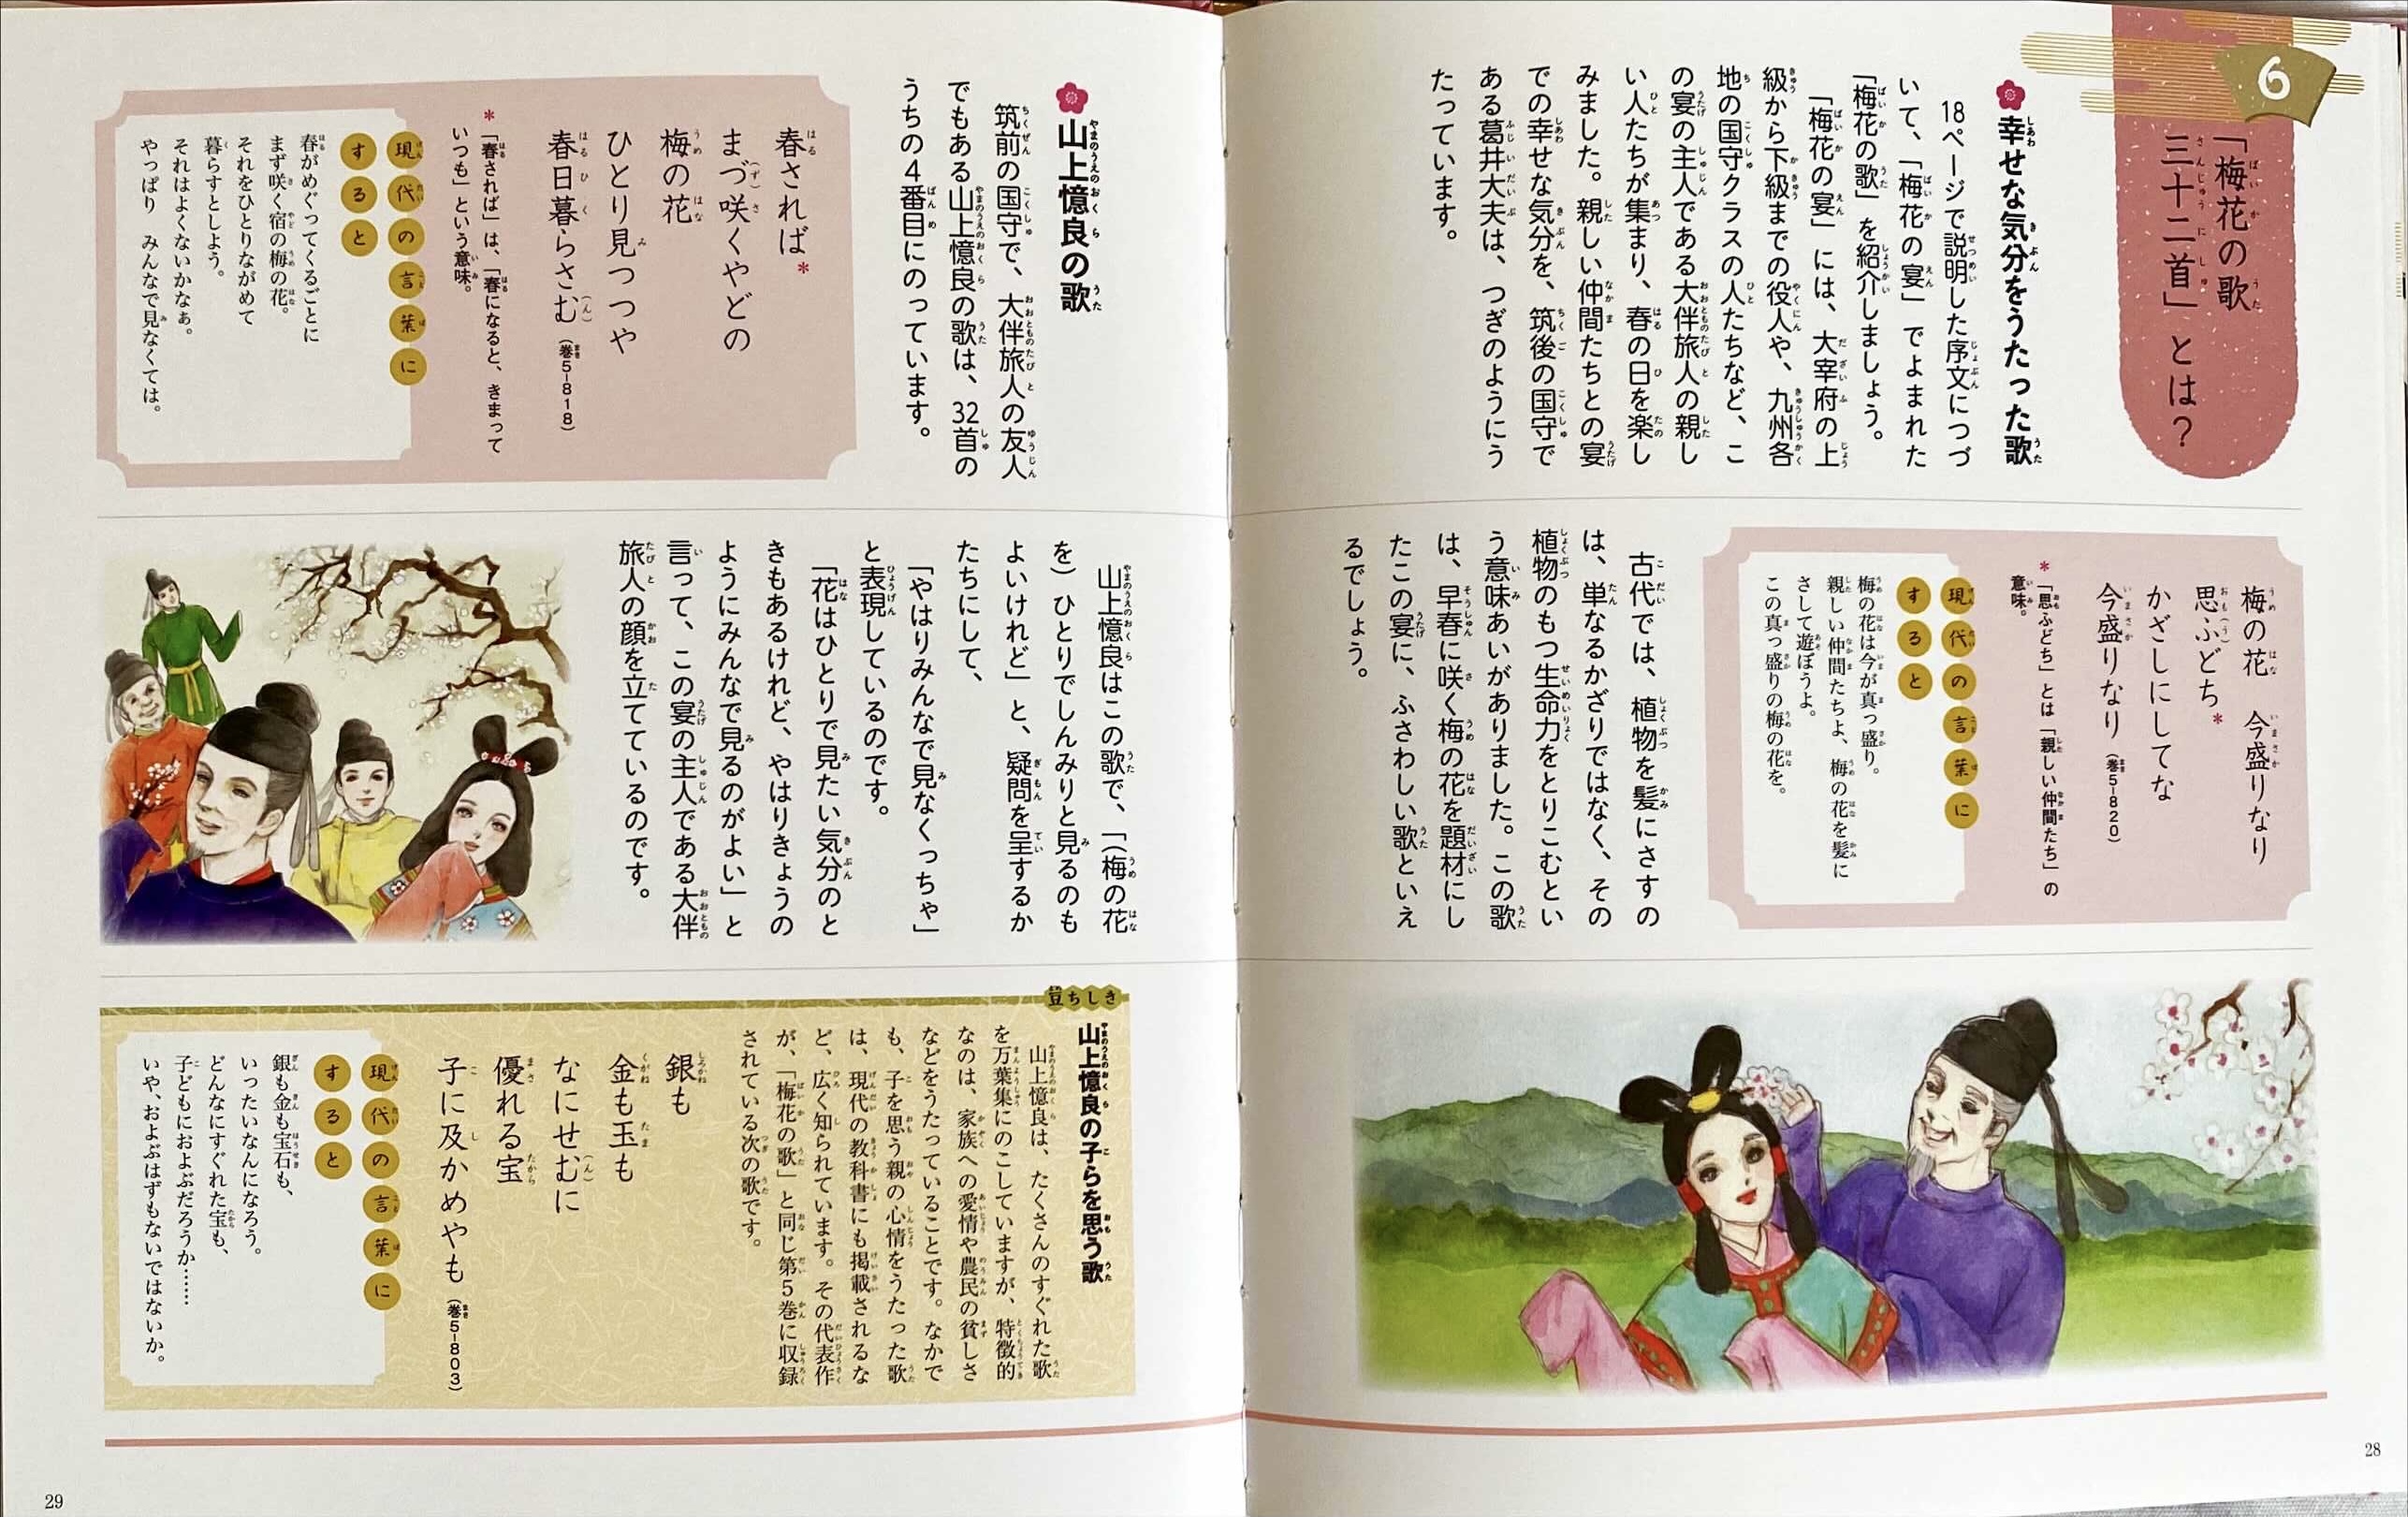 6
「梅花の歌
三十二首」とは?
幸せな気分をうたった歌
18ページで説明した序文につづ
いて、「梅花の宴」でよまれた
「梅花の歌」を紹介しましょう。
「梅花の宴」には、大宰府の上
級から下級までの役人や、九州各
地の国守クラスの人たちなど、こ
の宴の主人である大伴旅人の親し
い人たちが集まり、春の日を楽し
みました。親しい仲間たちとの宴
での幸せな気分を、筑後の国守で
ある葛井大夫は、つぎのようにう
たっています。
梅の花 今盛りなり
思ふどち*
かざしにしてな
今盛りなり(巻5-820)
*「思ふどち」とは「親しい仲間たち」の
意味。
現代の言葉に
すると
梅の花は今が真っ盛り。
親しい仲間たちよ、梅の花を髪に
さして遊ぼうよ。
この真っ盛りの梅の花を。
古代では、植物を髪にさすの
は、単なるかざりではなく、その
植物のもつ生命力をとりこむとい
う意味あいがありました。この歌
は、早春に咲く梅の花を題材にし
たこの宴に、ふさわしい歌といえ
るでしょう。
28
山上憶良の歌
筑前の国守で、大伴旅人の友人
でもある山上憶良の歌は、32首の
うちの4番目にのっています。
春されば*
まづ咲くやどの
梅の花
ひとり見つつや
春日暮らさむ(巻5-818)
*「春されば」は、「春になると、きまって
いつも」という意味。
現代の言葉に
すると
春がめぐってくるごとに
まず咲く宿の梅の花。
それをひとりながめて
暮らすとしよう。
それはよくないかなぁ。
やっぱり みんなで見なくては。
山上憶良はこの歌で、「(梅の花
を)ひとりでしんみりと見るのも
よいけれど」と、疑問を呈するか
たちにして、
「やはりみんなで見なくっちゃ」
と表現しているのです。
「花はひとりで見たい気分のと
きもあるけれど、やはりきょうの
ようにみんなで見るのがよい」と
言って、この宴の主人である大伴
旅人の顔を立てているのです。
豆ちしき
山上憶良の子らを思う歌
山上憶良は、たくさんのすぐれた歌
を万葉集にのこしていますが、特徴的
なのは、家族への愛情や農民の貧しさ
などをうたっていることです。なかで
も、子を思う親の心情をうたった歌
は、現代の教科書にも掲載されるな
ど、広く知られています。その代表作
が、「梅花の歌」と同じ第5巻に収録
されている次の歌です。
銀も
金も玉も
なにせむに
優れる宝
子に及かめやも(巻5-803)
現代の言葉に
すると
銀も金も宝石も、
いったいなんになろう。
どんなにすぐれた宝も、
子どもにおよぶだろうか……
いや、およぶはずもないではないか。
29